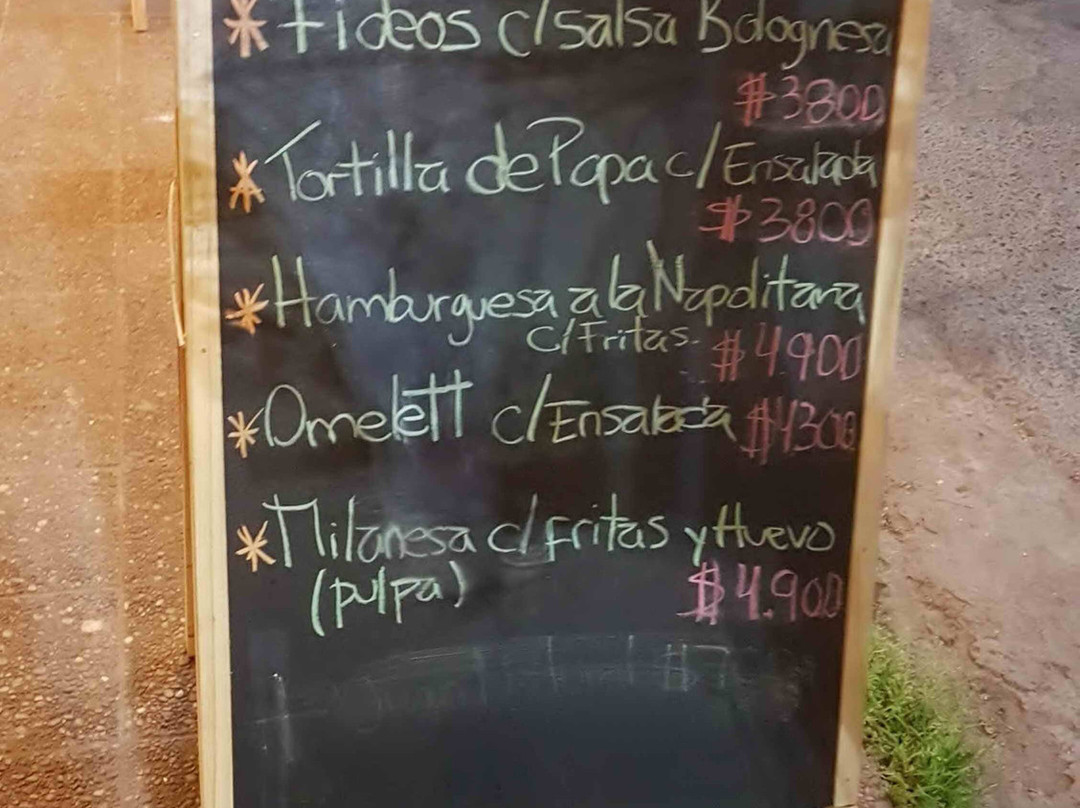 * Fideos c/salsa Bolognesa
$3800
* Tortilla de Papa c/Ensalada
$3800
* Hamburguesa a la Napolitana
c/Fritas. $4900
* Omelett c/Ensalada $4300
* Milanesa c/fritas y Huevo
(pulpa) $4.900